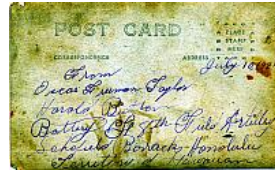 POST CARD
PLACE
STAMP
HERE
CORRESPONDENCE
ADDRESS
July 10
From
Oscar Truman Taylor
Harold
Battery Field Artillery
Barracks Honolulu
Territory of Hawaiian